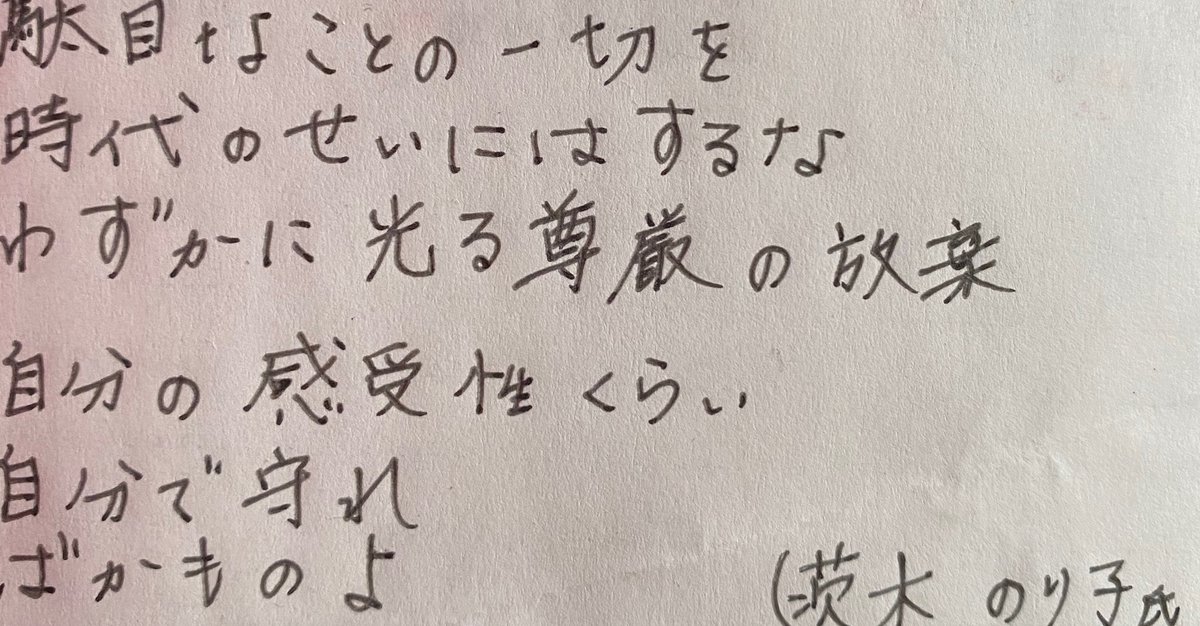 駄目なことの一切を
時代のせいにはするな
わずかに光る尊厳の放棄
自分の感受性くらい
自分で守れ
ばかものよ
(茨木のり子氏